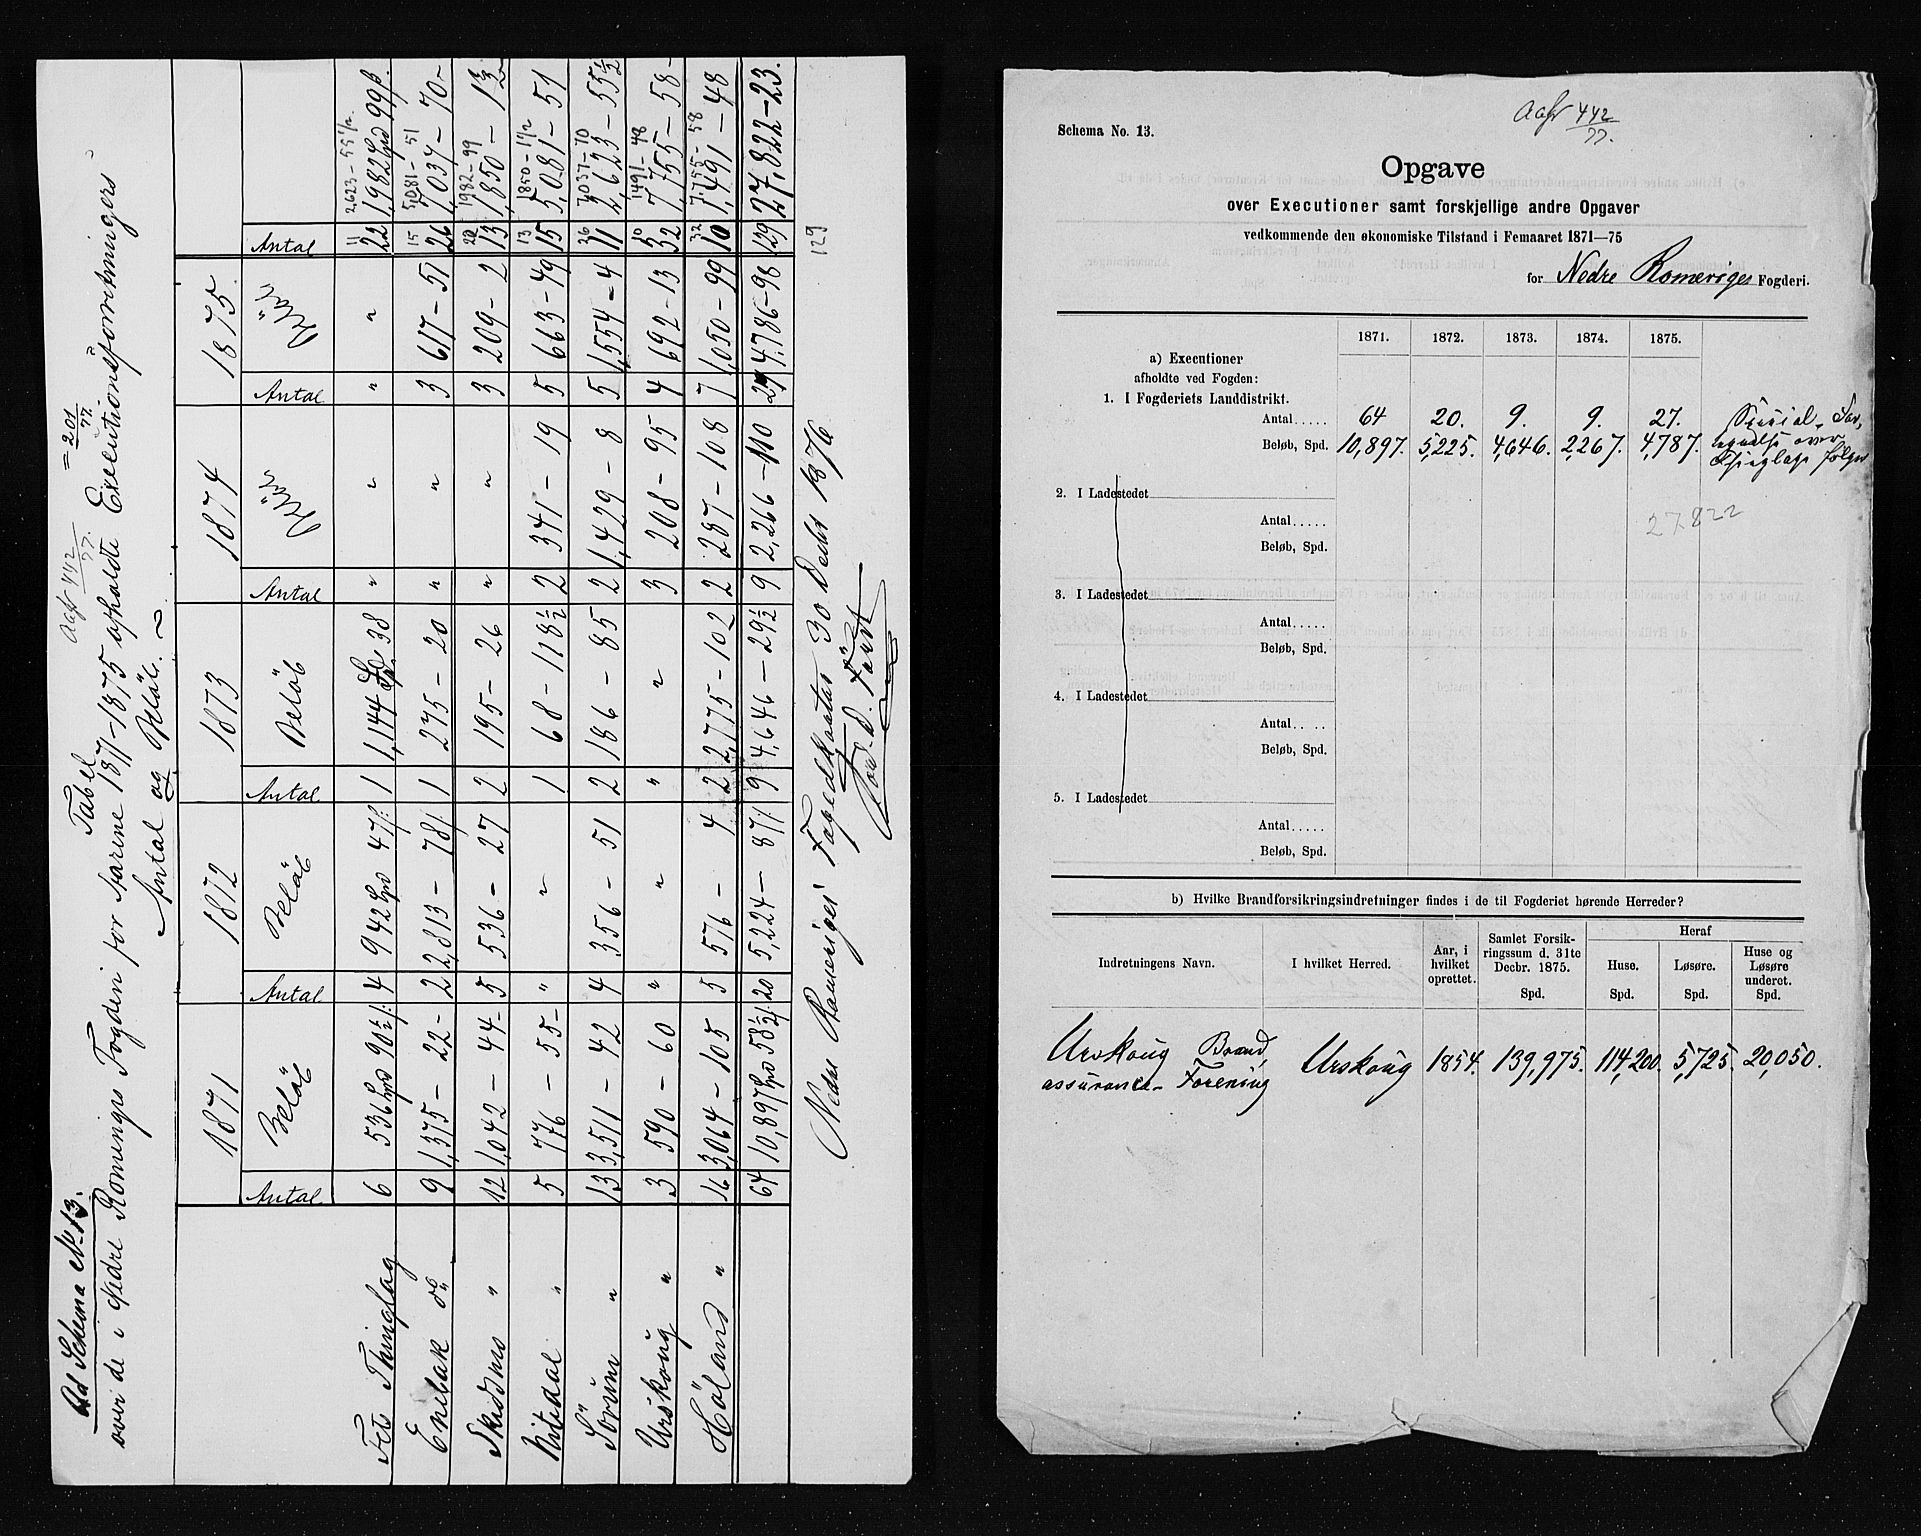 Ad Schema No 13.
Aafr 442/77. = 201/77.
Tabel
over de i Nedre Romeriges Fogderi for Aarene 1871-1875 afholdte Executionsforretningers
Antal og Beløb.
1871 1872 1873 1874 1875.
Antal Beløb Antal Beløb Antal Beløb Antal Beløb Antal Beløb Antal
2,623-55½. 11
Fets Thinglag 6 536 Spd 90½ ß. 4 942 Spd 47 ß. 1 1,144 Spd 38 " " " " 22 1,982 Spd 99 ß.
5,081-51 15
Enebak do 9 1,375-22- 2 2,813-78 ß. 1 275-20 " " 3 617-51 26 7,037-70-
1982-99 20
Skedsmo " 12 1,042-44- 5 536-27 2 195-26 " " 3 209-2 13 1,850-1½
1850-1½ 13
Nitedal " 5 776-55- " " 1 68-118½ 2 341-19 5 663-49 15 5,081-51
7,037-70 26
Sörum " 13 3,511-42 4 356-51 2 186-85 2 1,429-8 5 1,554-4 11 2,623-55½
1491-48 10
Urskoug " 3 590-60 " " " " 3 208-95 4 692-13 32 7,755-58-
7,755-58 32
Höland " 16 3,064-105 5 576-4 2 2,775-102 2 287-108 7 1,050-99 10 1,491-48
64 10,897 Spd 58½ ß. 20 5,224-87 ß. 9 4,646-29½ 9 2,266-110 27 4,786-98 129 27,822-23.
129
Nedre Romeriges Fogedkontor 30 Decbr 1876
Schema No. 13.
Aafr 442/77.
Opgave
over Executioner samt forskjellige andre Opgaver
vedkommende den økonomiske Tilstand i Femaaret 1871—75
for Nedre Romeriges Fogderi.
1871. 1872. 1873. 1874. 1875.
a) Executioner
afholdte ved Fogden:
1. I Fogderiets Landdistrikt.
Antal..... 64 20. 9. 9. 27. Special-For-
Beløb, Spd. 10,897. 5,225. 4,646. 2,267. 4,787. tegnelse over
Thinglage følger
2. I Ladestedet
Antal..... 27.822
Beløb, Spd.
3. I Ladestedet
Antal.....
Beløb, Spd.
4. I Ladestedet
Antal.....
Beløb, Spd.
5. I Ladestedet
Antal.....
Beløb, Spd.
b) Hvilke Brandforsikringsindretninger findes i de til Fogderiet hørende Herreder?
Indretningens Navn. I hvilket Herred. Aar, i hvilket oprettet. Samlet Forsikringssum d. 31te Decbr. 1875. Spd. Heraf
Huse. Spd. Løsøre. Spd. Huse og Løsøre underet. Spd.
Urskoug Brand-
assurance-Forening Urskoug 1854. 139,975. 114,200. 5,725. 20,050.